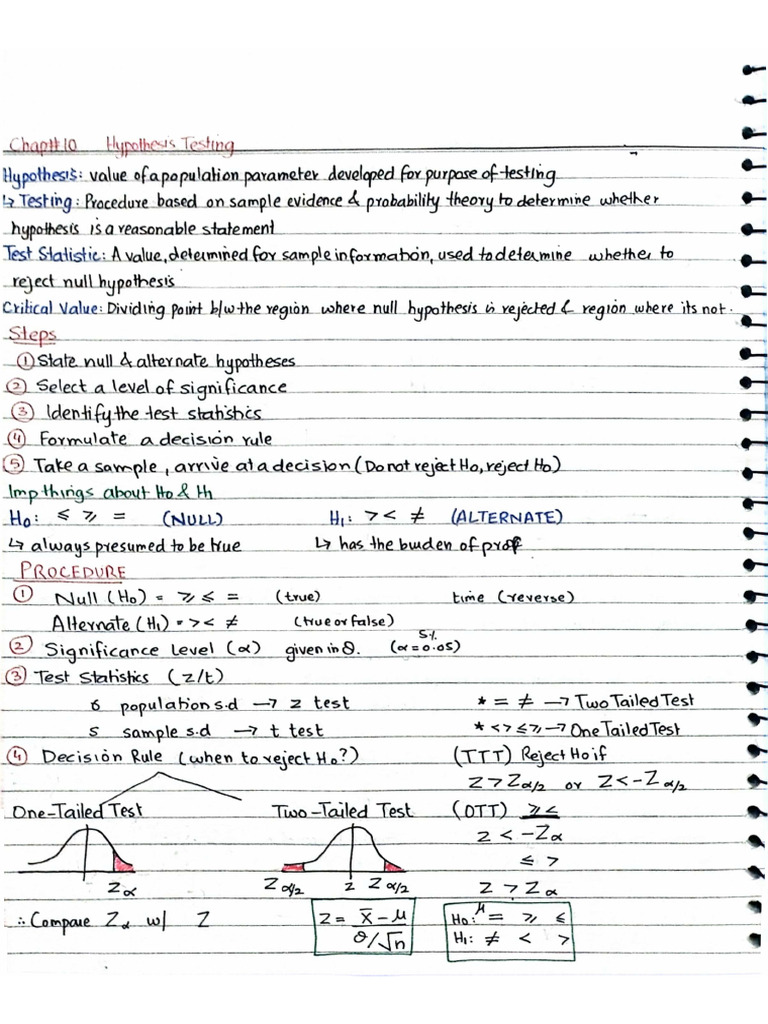 Chapt#10 Hypothesis Testing
Hypothesis: value of a population parameter developed for purpose of testing
↳ Testing: Procedure based on sample evidence & probability theory to determine whether
hypothesis is a reasonable statement
Test Statistic: A value, determined for sample information, used to determine whether to
reject null hypothesis
Critical Value: Dividing point b/w the region where null hypothesis is rejected & region where its not.
Steps
① State null & alternate hypotheses
② Select a level of significance
③ Identify the test statistics
④ Formulate a decision rule
⑤ Take a sample, arrive at a decision (Do not reject H₀, reject H₀)
Imp things about H₀ & H₁
H₀: ≤ ≥ = (NULL) H₁: > < ≠ (ALTERNATE)
↳ always presumed to be true ↳ has the burden of prof
PROCEDURE
① Null (H₀) = ≥ ≤ = (true) time (reverse)
Alternate (H₁) = > < ≠ (true or false)
② Significance Level (α) given in Q. (α = 0.05) 5%
③ Test Statistics (z/t)
σ population s.d → z test * = ≠ → Two Tailed Test
s sample s.d → t test * < > ≤ ≥ → One Tailed Test
④ Decision Rule (when to reject H₀?) (TTT) Reject H₀ if
Z > Zα/2 or Z < -Zα/2
One-Tailed Test Two-Tailed Test (OTT) ≥ <
Z < -Zα
≤ >
Zα Zα/2 z Zα/2 Z > Zα
∴ Compare Zα w/ Z Z = X̄ - μ / σ/√n H₀: μ = ≥ ≤
H₁: ≠ < >